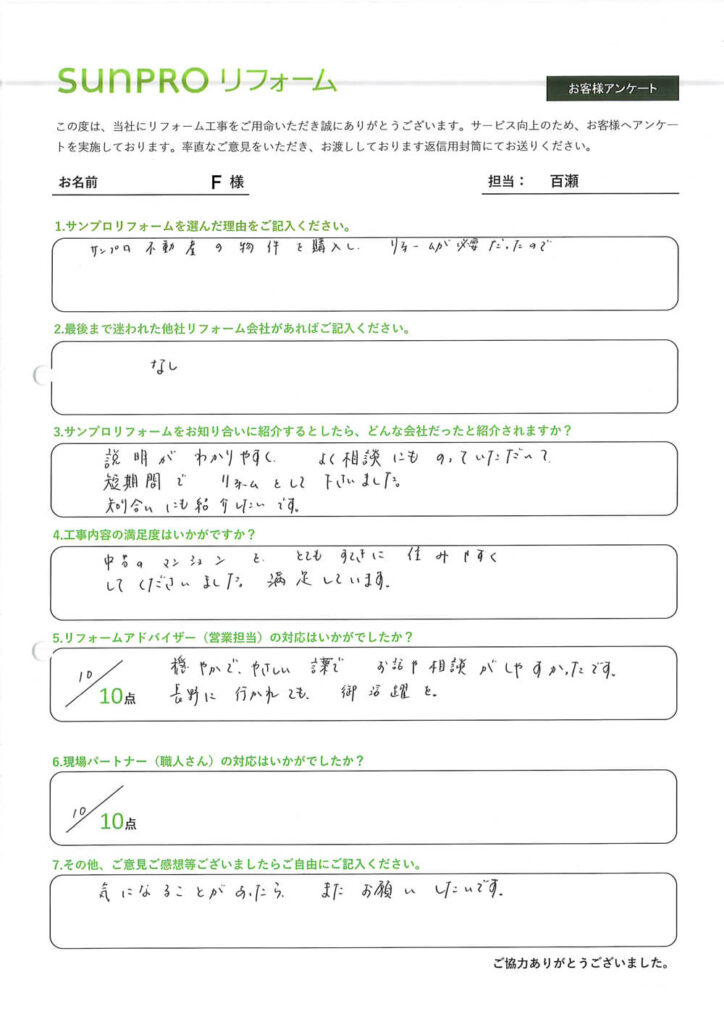 sunPRO リフォーム
お客様アンケート
この度は、当社にリフォーム工事をご用命いただき誠にありがとうございます。サービス向上のため、お客様へアンケー
トを実施しております。率直なご意見をいただき、お渡ししております返信用封筒にてお送りください。
お名前 F 様 担当： 百瀬
1.サンプロリフォームを選んだ理由をご記入ください。
サンプロ不動産の物件を購入し、リフォームが必要だったので
2.最後まで迷われた他社リフォーム会社があればご記入ください。
なし
3.サンプロリフォームをお知り合いに紹介するとしたら、どんな会社だったと紹介されますか？
説明がわかりやすく、よく相談にものっていただいて、
短期間でリフォームをして下さいました。
知り合いにも紹介したいです。
4.工事内容の満足度はいかがですか？
中古のマンションを、とてもすてきに住みやすく
してくださいました。満足しています。
5.リフォームアドバイザー（営業担当）の対応はいかがでしたか？
10/10点
穏やかで、やさしい でお話や相談がしやすかったです。
長野に行かれても、御活躍を。
6.現場パートナー（職人さん）の対応はいかがでしたか？
10/10点
7.その他、ご意見ご感想等ございましたらご自由にご記入ください。
気になることがあったら、またお願いしたいです。
ご協力ありがとうございました。